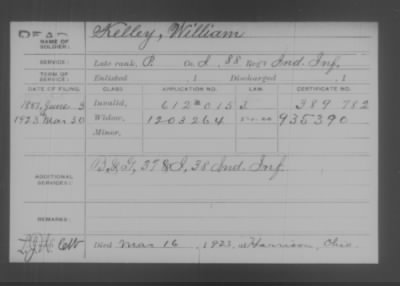 DEAD
NAME OF SOLDIER: Kelley, William
SERVICE: Late rank, P. Co. I, 88 Reg't Ind. Inf.
TERM OF SERVICE: Enlisted , 1 Discharged , 1
DATE OF FILING. CLASS. APPLICATION NO. LAW. CERTIFICATE NO.
1887, June 3 Invalid, 612015 389 782
1923 Mar 30 Widow, 1203264 935390
Minor,
ADDITIONAL SERVICES: B & G, 37 & I, 38 Ind. Inf.
REMARKS:
Died Mar 16, 1923, at Harrison, Ohio.